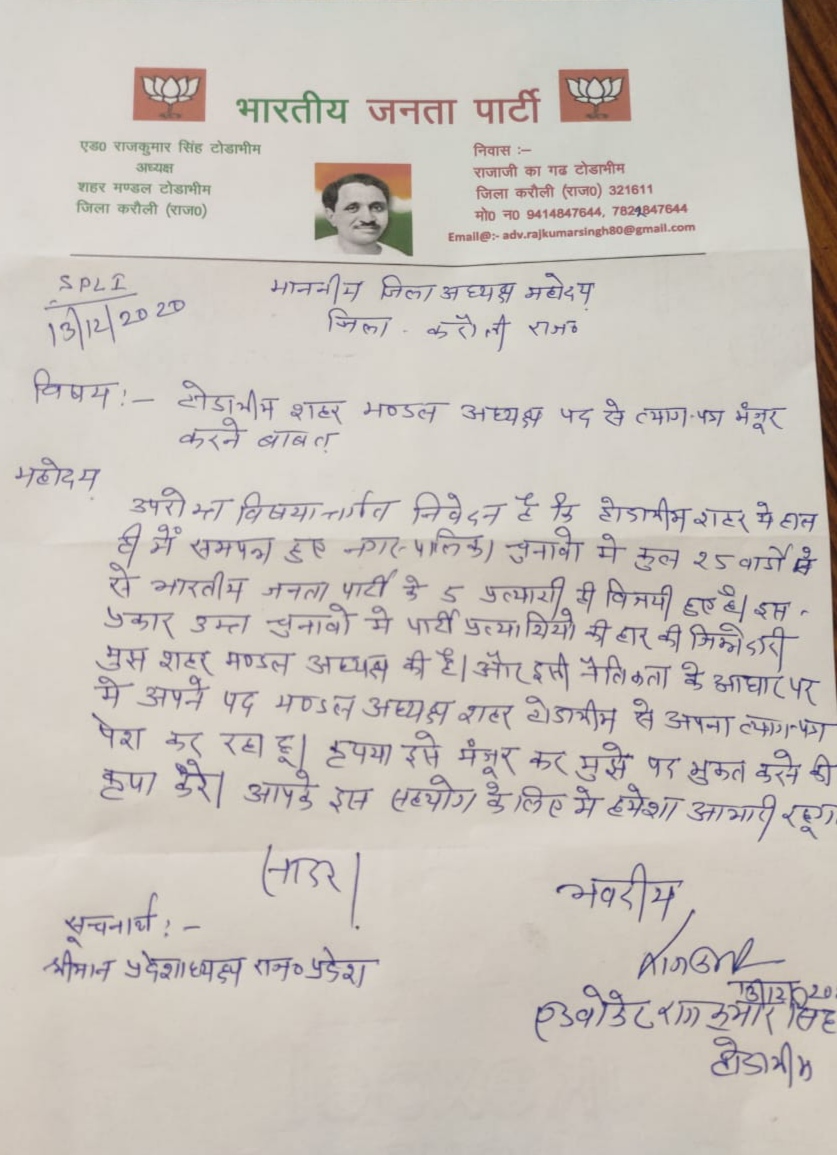 भारतीय जनता पार्टी
एड0 राजकुमार सिंह टोडाभीम
अध्यक्ष
शहर मण्डल टोडाभीम
जिला करौली (राज0)
निवास :-
राजाजी का गढ टोडाभीम
जिला करौली (राज0) 321611
मो0 न0 9414847644, 7821847644
Email@:- adv.rajkumarsingh80@gmail.com
SPLI
13/12/2020
माननीय जिला अध्यक्ष महोदय
जिला - करौली राज०
विषय :- टोडाभीम शहर मण्डल अध्यक्ष पद से त्याग-पत्र मंजूर
करने बाबत्
महोदय
उपरोक्त विषयान्तर्गत निवेदन है कि टोडाभीम शहर मे हाल
ही में सम्पन्न हुए नगर-पालिका चुनावो मे कुल 25 वार्डो मे
से भारतीय जनता पार्टी के 5 प्रत्याशी ही विजयी हुए है। इस -
प्रकार उक्त चुनावो मे पार्टी प्रत्याशियो की हार की जिम्मेदारी
मुझ शहर मण्डल अध्यक्ष की है। और इसी नैतिकता के आधार पर
मे अपने पद मण्डल अध्यक्ष शहर टोडाभीम से अपना त्याग-पत्र
पेश कर रहा हू। कृपया इसे मंजूर कर मुझे पद मुक्त करने की
कृपा करे। आपके इस सहयोग के लिए मे हमेशा आभारी रहूगा
सादर।
भवदीय
सूचनार्थ :-
श्रीमान प्रदेशाध्यक्ष राज० प्रदेश
13/12/20
एडवोकेट राजकुमार सिंह
टोडाभीम